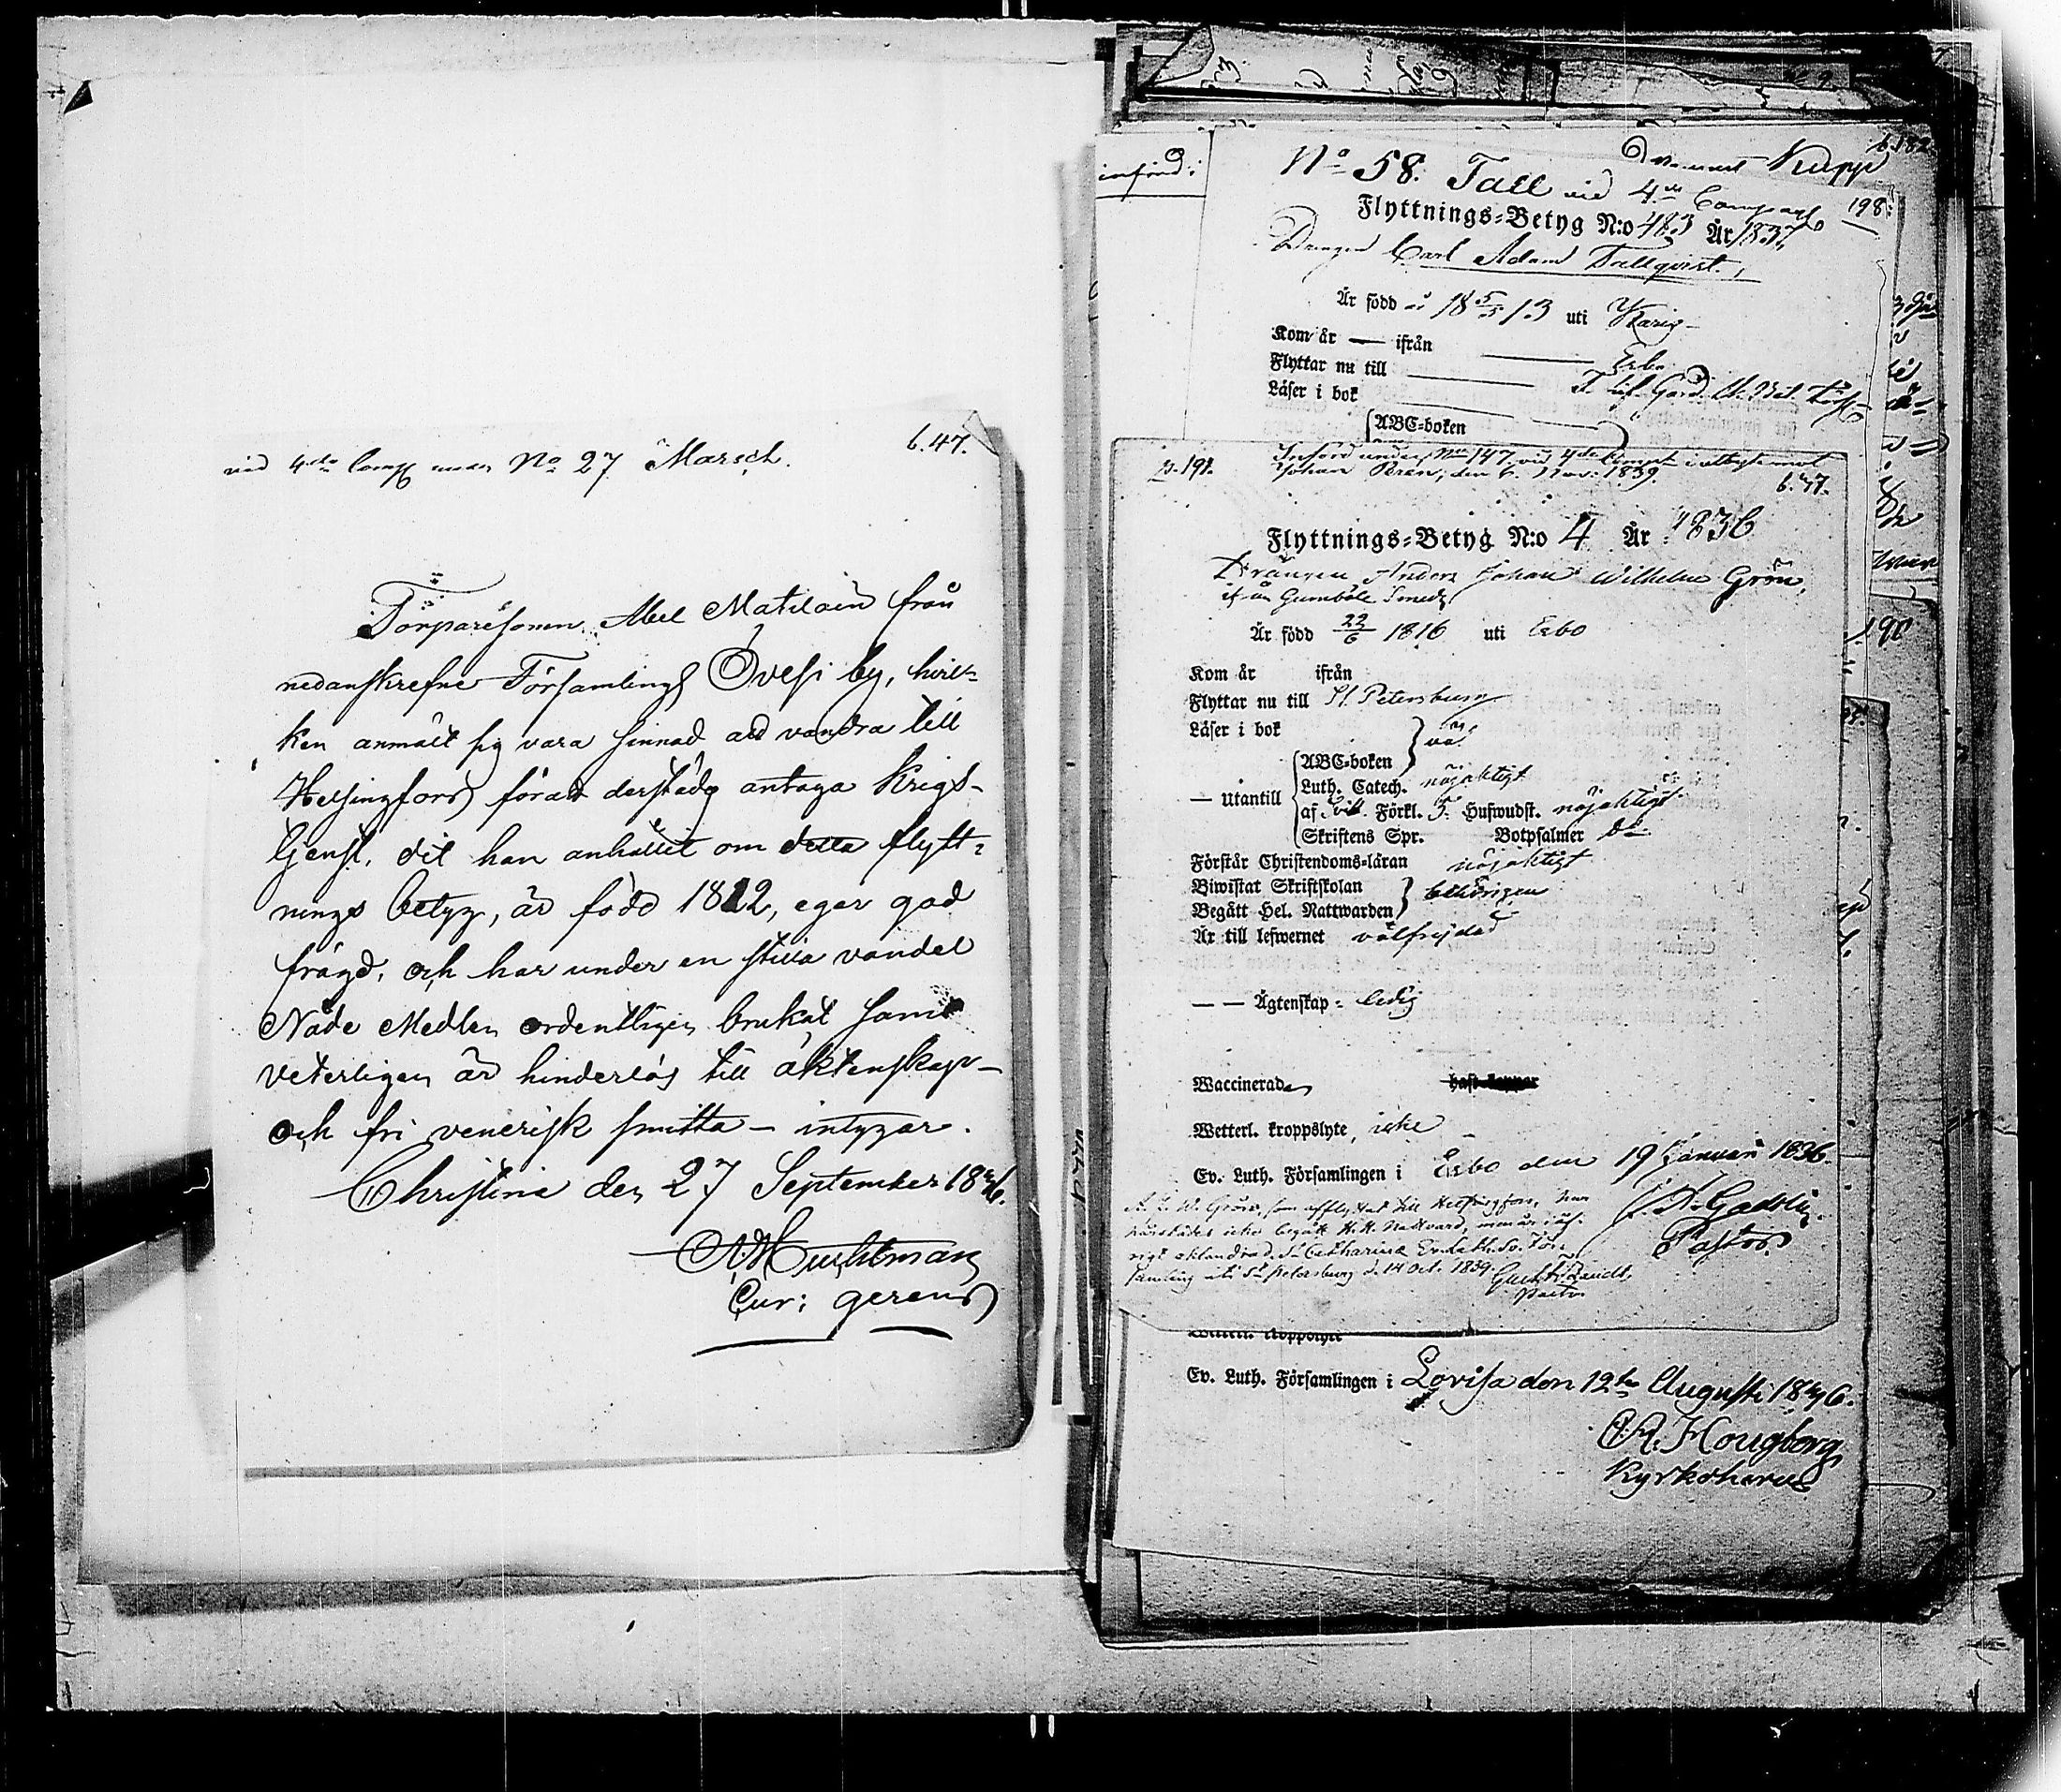 b. 47.
vid 4de Comp under No 27 Marsch.
Torparesonen Abel Matilain från
nedanskrefne Församlings Ovesi by, hvil-
ken anmält sig vara sinnad att vandra till
Helsingfors för att derstädes antaga Krigs-
tjenst, dit han anhållit om detta flytt-
nings betyg, är född 1812, eger god
frägd, och har under en stilla vandel
Nåde Medlen ordentligen brukat samt
veterligen är hinderlös till äktenskap
och fri venerisk smitta – intygar.
Christina den 27 September 1846.
Cur: gerens
införd:
b. 182
Kupp
No 58. Tall vid 4de Compart
198.
Flyttnings-Betyg N:o 483 År 1837
Drängen Carl Adam Tallqvist.
Är född 18 5/5 13 uti Karis
Kom år — ifrån
Esbo
Flyttar nu till
Läser i bok
ABC-boken
p. 191.
Införd under No 147 vid 4de Comp
Johan Beren, den 6. Nov: 1839.
b. 47.
Flyttnings-Betyg N:o 4 År 1836
Drängen Anders Johan Wilhelm Grön,
ifrån Gumböle
Är född 22/6 1816 uti Esbo
Kom år ifrån
Flyttar nu till St. Petersburg
Läser i bok
ABC-boken
— utantill Luth. Catech. nöjaktigt
af Svib. Förkl. 5. Hufwudst. nöjaktigt
Skriftens Spr. Botpsalmer do
Förstår Christendoms-läran nöjaktigt
Biwistat Skriftskolan
behörigen
Begått Hel. Nattwarden
Är till lefwernet välfrejdad
— — Ägtenskap: ledig
Waccinerad
Wetterl. kroppslyte, icke
Ev. Luth. Församlingen i Esbo den 19 Januari 1836.
A. J. W. Grön, som afflyttat till Helsingfors, har
härstädes icke begått H. H. Nattvard, men är i öf-
rigt oklandrad. St Catharina Ev. Luth. Sv. För-
samling uti St Petersburg d. 14 Oct. 1839.
Pastor
Pastor
Wetterl. kroppslyte
Ev. Luth. Församlingen i Lovisa den 12te Augusti 1846.
A. R. Hougberg
Kyrkoherde